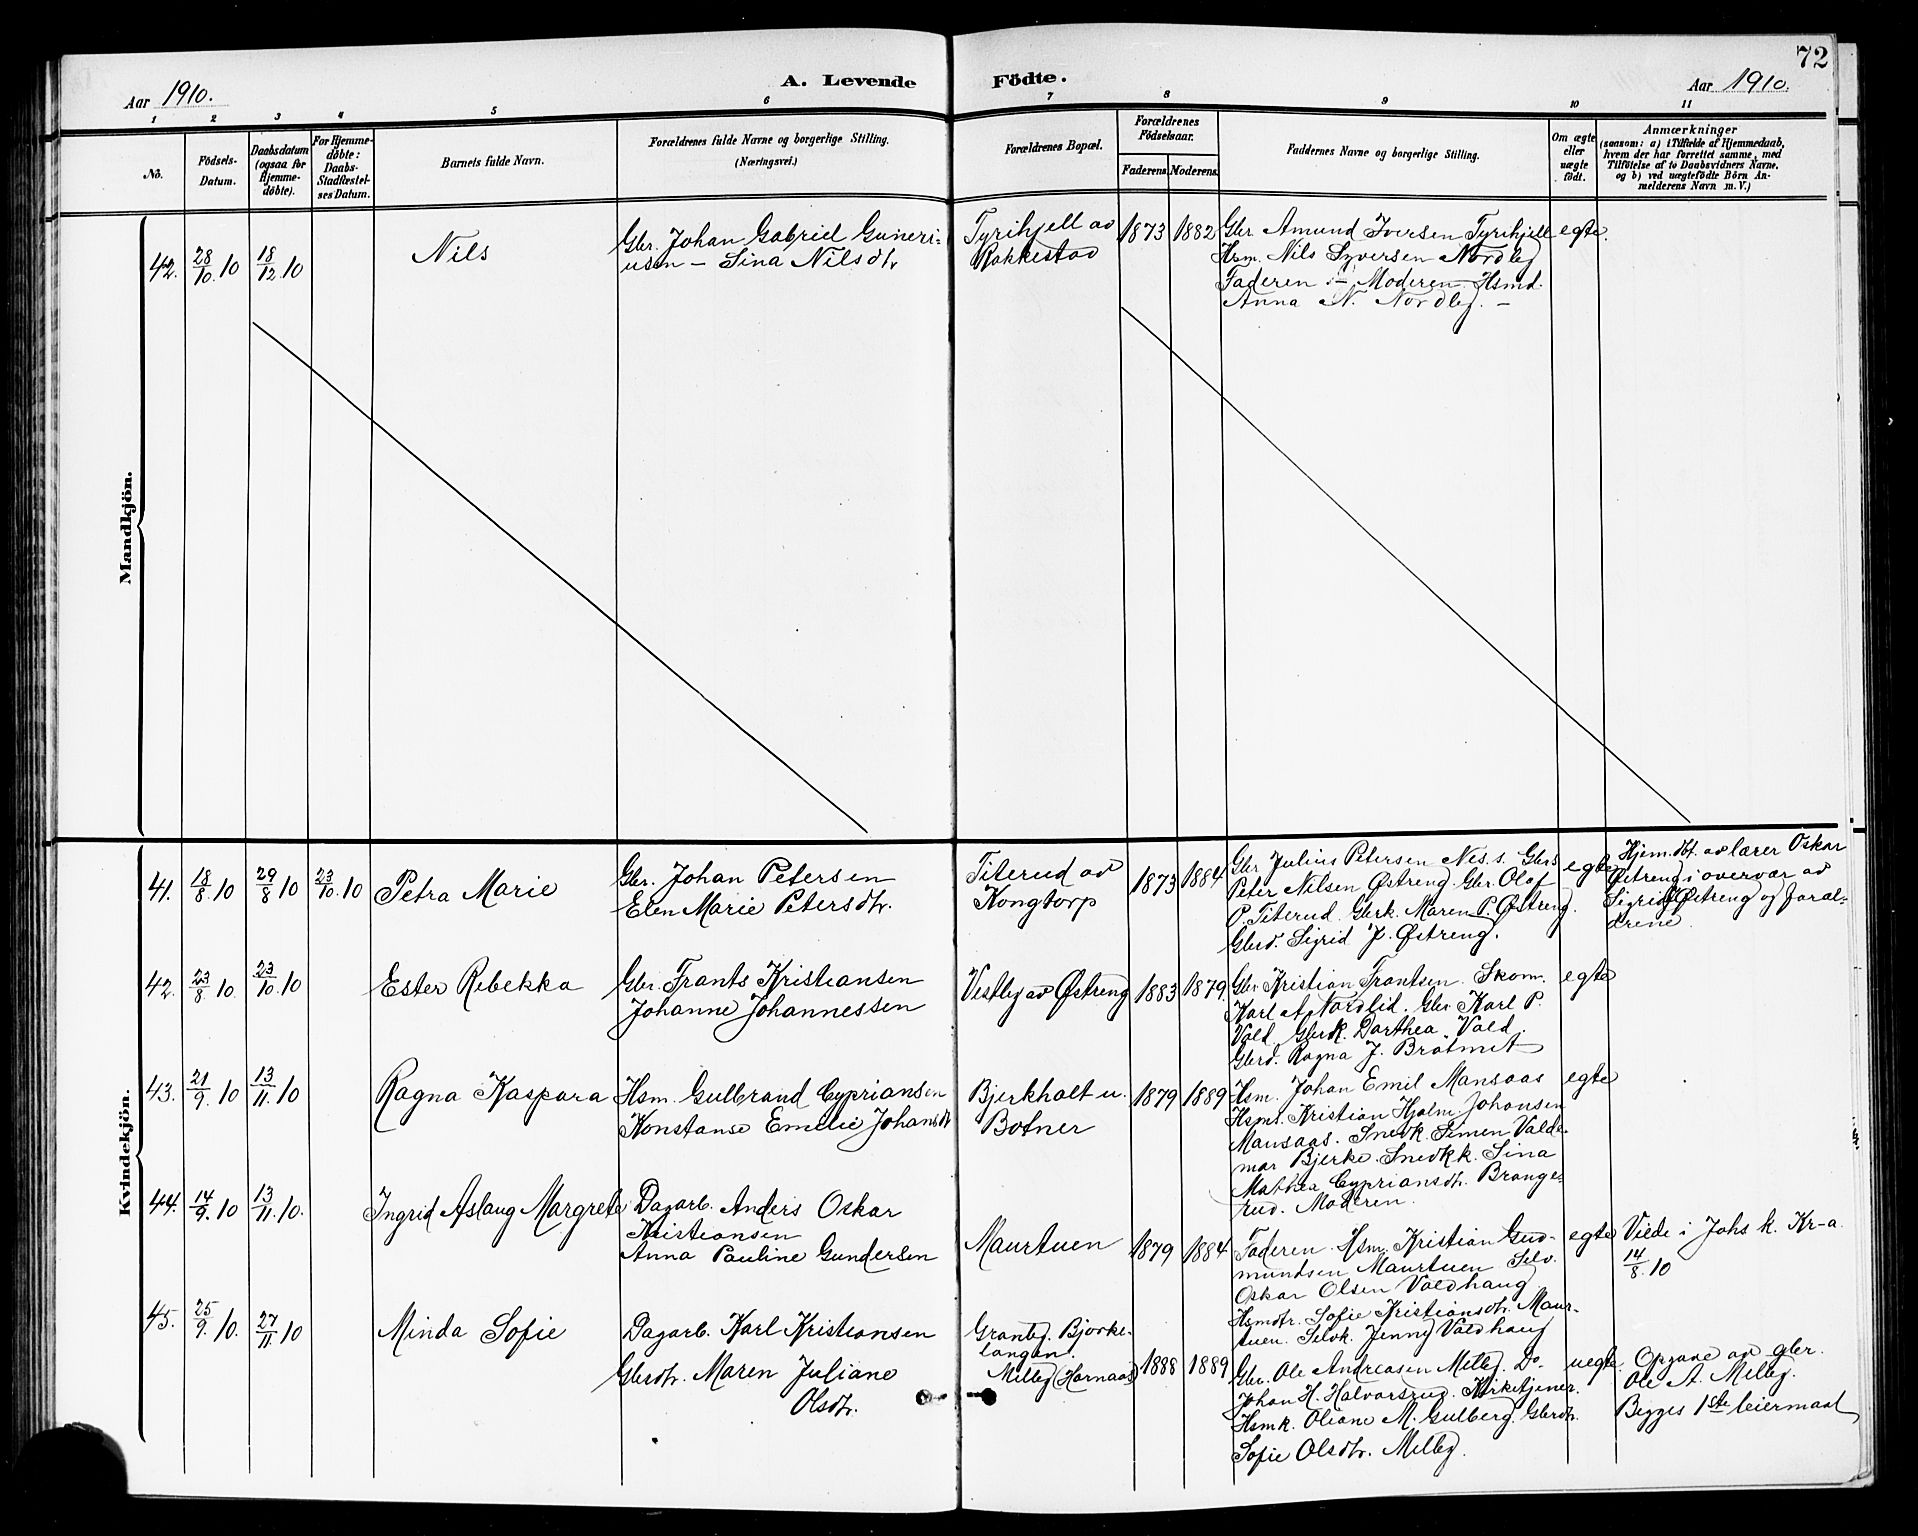 72
Aar 1910.
A. Levende Födte.
Aar 1910.
1 2 3 4 5 6 7 8 9 10 11
No.
Födsels-
Datum.
Daabsdatum
(ogsaa for
Hjemme-
döbte).
For Hjemme-
döbte:
Daabs-
Stadfæstel-
ses Datum.
Barnets fulde Navn.
Forældrenes fulde Navne og borgerlige Stilling.
(Næringsvei.)
Forældrenes Bopæl.
Forældrenes
Födselsaar.
Faderens
Moderens
Faddernes Navne og borgerlige Stilling.
Om ægte
eller
uægte
födt.
Anmærkninger
(saasom: a) i Tilfælde af Hjemmedaab,
hvem der har forrettet samme, med
Tilföielse af to Daabsvidners Navne,
og b) ved uægtefödte Börn An-
melderens Navn m. V.)
Mandkjön.
42.
28/10. 10
18/12. 10
Nils
Gbr. Johan Gabriel Guneri-
usen – Lina Nilsdtr
Tyrihjell av
Rakkestad
1873
1882
Gbr. Amund Iversen Tyrihjell
Hsm. Nils Syversen Nordby
Faderen – Moderen. Hsmd.
Anna N. Nordby. –
egte.
Kvindekjön.
41.
18/8. 10
29/8 10
23/10. 10
Petra Marie
Gbr. Johan Petersen
Elen Marie Petersdtr.
Titerud av
Kongtorp
1873
1884
Gbr Julius Petersen Nes. s. Gbrs
Peter Nilsen Østreng. Gbr. Olof
P. Titerud. Gbrk. Maren P. Østreng.
Gbrd. Sigrid J. Østreng.
egte
Hjem.dbt. av lærer Oskar
Østreng i overvær av
Sigrid Østreng og foræl-
drene.
42.
23/8. 10.
23/10. 10
Ester Rebekka
Gbr. Frants Kristiansen
Johanne Johannessen
Vestby av Østreng
1883
1879.
Gbr Kristian Frantsen. Skom.
Karl A. Nordlid. Gbr Karl P.
Vald. Gbrk. Darthea Vald.
Gbrd. Ragna J. Bråtmit
egte
43.
21/9. 10
13/11. 10
Ragna Kaspara
Hsm. Gulbrand Cypriansen
Konstanse Emelie Johansdt
Bjerkholt u.
Botner
1879
1889
Hsm. Johan Emil Mansaas
Hsms. Kristian Hjalm. Johansen
Mansaas. Snedk. Simen Valde-
mar Bjerke. Snedkk. Lina
Mathea Cypriansdtr. Brange-
rud. Moderen.
egte
44.
14/9. 10
13/11. 10.
Ingrid Aslaug Margrete
Dagarb. Anders Oskar
Kristiansen
Anna Pauline Gundersen
Maurtuen
1879
1884
Faderen. Hsm. Kristian Gud-
mundsen Maurtuen. Selv.
Oskar Olsen Valdhaug
Hsmdtr. Sofie Kristiansdtr. Maur-
tuen. Selvk. Jenny Valdhaug
egte
Viede i Johs k. Kr-a.
14/8. 10
45.
25/9. 10.
27/11. 10
Minda Sofie
Dagarb. Karl Kristiansen
Gbrdtr. Maren Juliane
Olsdtr.
Granby. Bjørke-
langen.
Melby (Hornaas)
1888
1889
Gbr. Ole Andreasen Melby. Do.
Johan H. Halvorsrud. Kirketjener.
Hsmk. Oliane M. Gulberg. Gbrdtr.
Sofie Olsdtr. Melby.
uegte.
Opgave av gbr.
Ole A. Melby.
Begges 1ste leiermaal